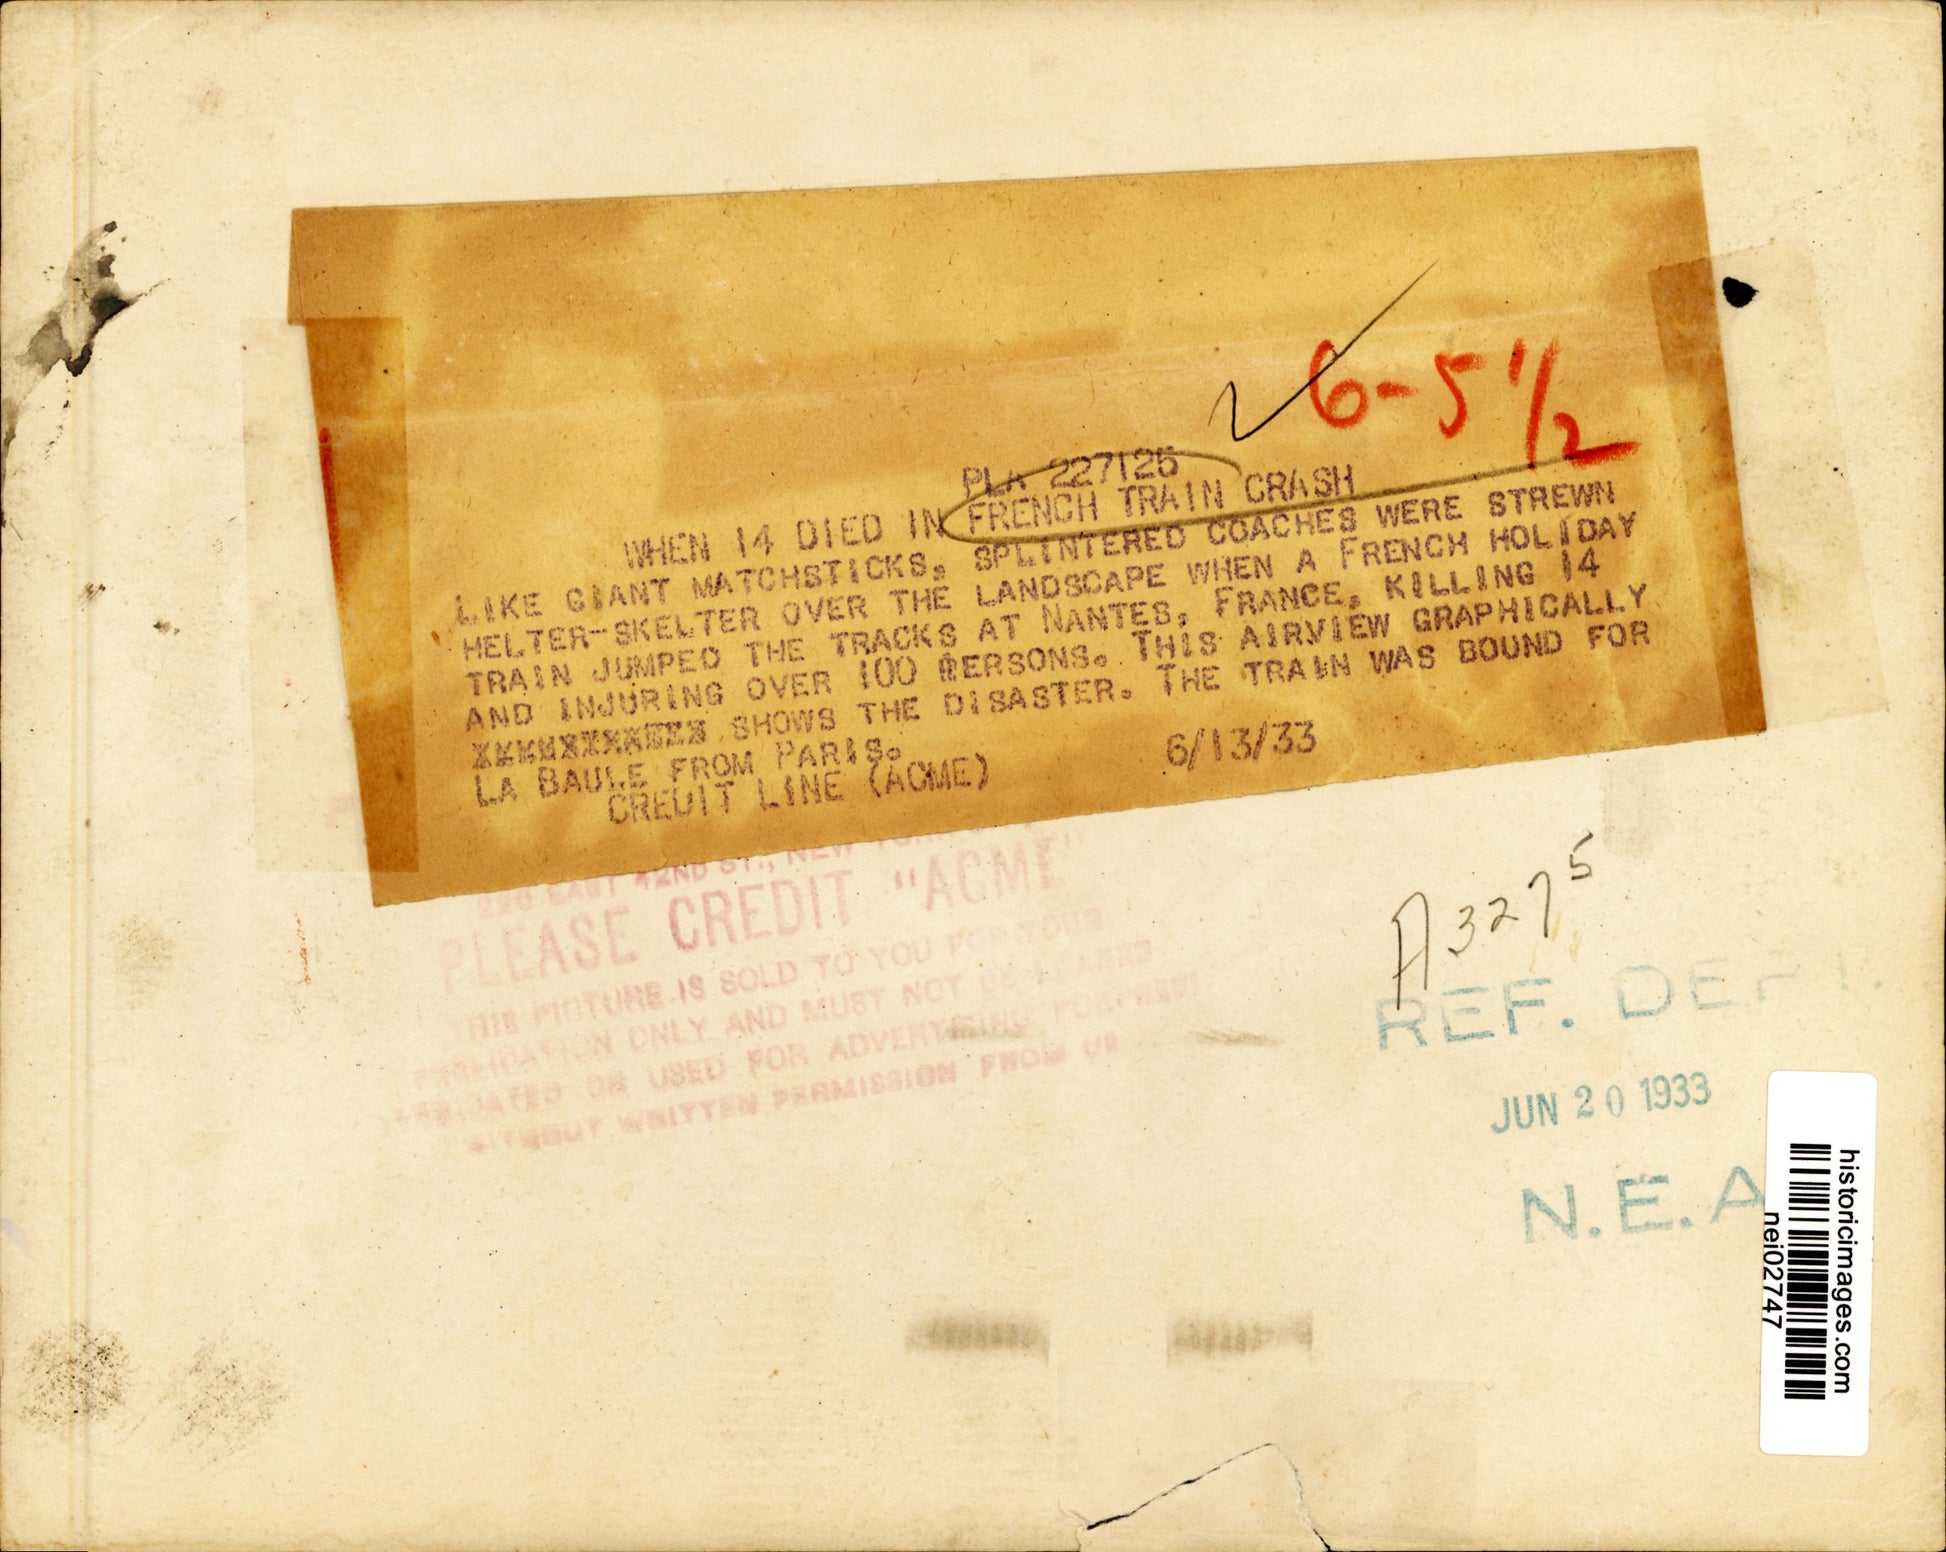 6-5 1/2
PLA 227125
WHEN 14 DIED IN FRENCH TRAIN CRASH
LIKE GIANT MATCHSTICKS, SPLINTERED COACHES WERE STREWN
HELTER-SKELTER OVER THE LANDSCAPE WHEN A FRENCH HOLIDAY
TRAIN JUMPED THE TRACKS AT NANTES, FRANCE, KILLING 14
AND INJURING OVER 100 PERSONS. THIS AIRVIEW GRAPHICALLY
SHOWS THE DISASTER. THE TRAIN WAS BOUND FOR
LA BAULE FROM PARIS.
CREDIT LINE (ACME) 6/13/33
220 EAST 42ND ST., NEW YORK
PLEASE CREDIT "ACME"
THIS PICTURE IS SOLD TO YOU FOR YOUR
PUBLICATION ONLY AND MUST NOT BE LOANED
SYNDICATED OR USED FOR ADVERTISING PURPOSES
WITHOUT WRITTEN PERMISSION FROM US
A3275
REF. DEPT.
JUN 20 1933
N.E.A
historicimages.com
nei02747